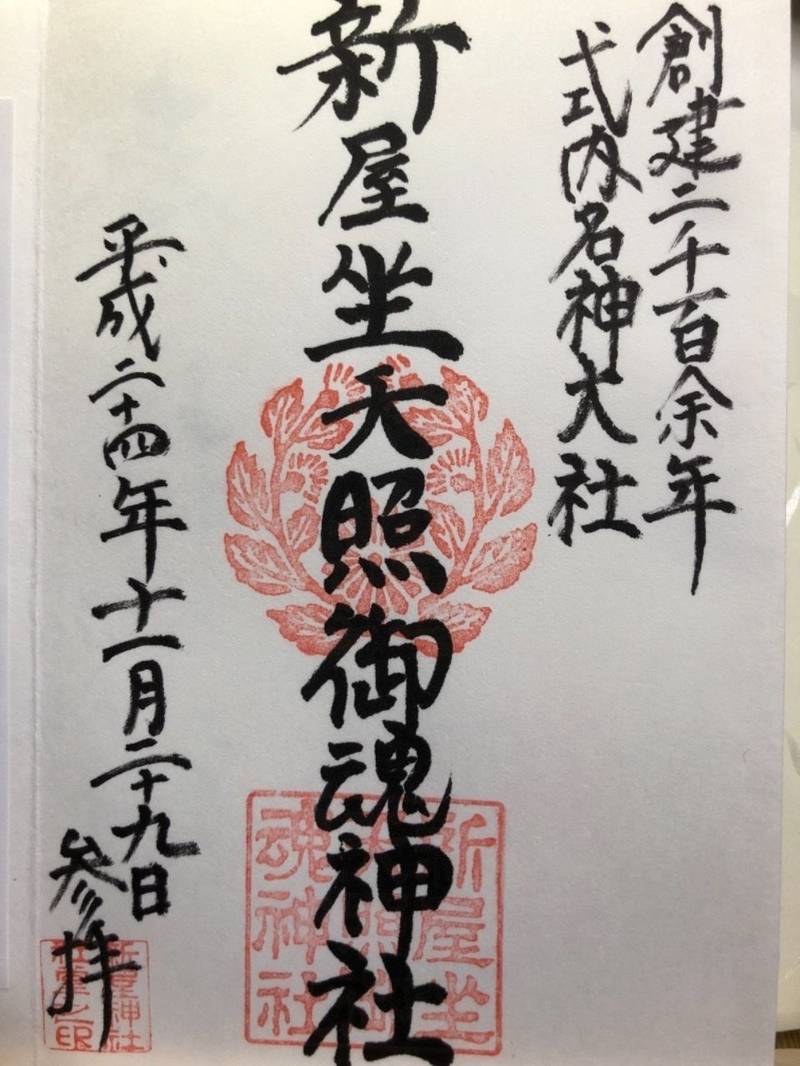 創建二千百余年
式内名神大社
新屋坐天照御魂神社
平成二十四年十一月二十九日
参拝
新屋坐
天照御
魂神社